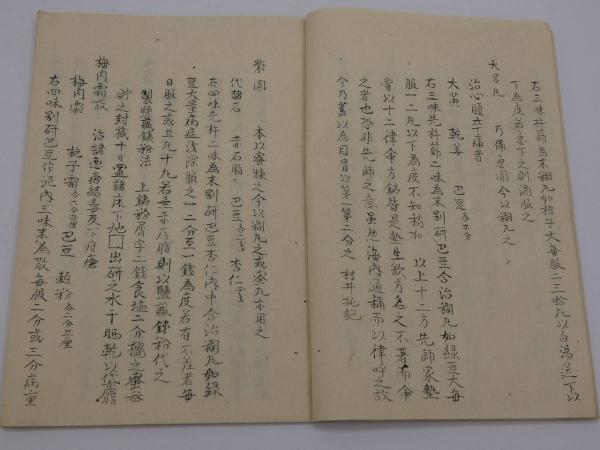 右三味杵篩為末糊丸如梧子大每服二三拾丸以白湯送下以
下為度若急下之則酒服之
大呂丸 乃備急圓今以糊丸之
治心腹卒痛者
大黄 乾姜 巴豆各等分
右三味先杵篩二味為末別研巴豆合治糊丸如緑豆大每
服一二丸以下為度不知稍加 以上十二方先師家塾
嘗以十二律命方銘皆是塾生欲方名之不著而命
之者也恐非先師之意雖然海内通稱而以律呼之故
今乃舊以為目冒以第一第二分之 村井 記
紫圓 本以蜜煉之今以糊丸之或蜜丸亦用之
代赭石 赤石脂 巴豆 杏仁
右四味先杵二味為末別研巴豆杏仁内中合治糊丸如緑
豆大量病症浅深服之一二分至一錢為度若有不差者每
日服之或五丸十丸若無赤石脂則以鹽蔵鉄粉代之
製鹽蔵鉄粉法 上鉄粉屑字二錢食塩二分擣之蜜器
貯之封蔵十日置諸床下地□出研之水干晒乾以
梅肉霜散 治諸悪瘡結毒及下疳瘡
梅肉霜 梔子霜 巴豆 軽粉
右四味別研巴豆作泥内三味末為散每服二分或三分病重